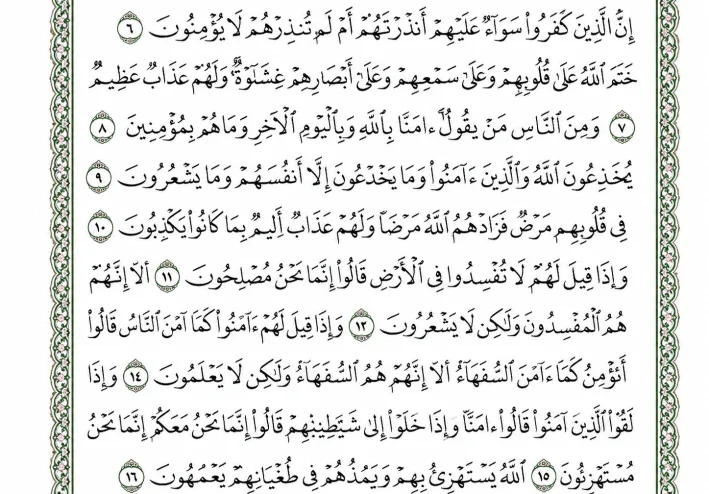 إِنَّ الَّذِينَ كَفَرُوا۟ سَوَآءٌ عَلَيْهِمْ ءَأَنذَرْتَهُمْ أَمْ لَمْ تُنذِرْهُمْ لَا يُؤْمِنُونَ ٦
خَتَمَ اللَّهُ عَلَىٰ قُلُوبِهِمْ وَعَلَىٰ سَمْعِهِمْ وَعَلَىٰٓ أَبْصَارِهِمْ غِشَاوَةٌ وَلَهُمْ عَذَابٌ عَظِيمٌ
٧ وَمِنَ النَّاسِ مَن يَقُولُ ءَامَنَّا بِاللَّهِ وَبِالْيَوْمِ الْآخِرِ وَمَا هُم بِمُؤْمِنِينَ ٨
يُخَٰدِعُونَ اللَّهَ وَالَّذِينَ ءَامَنُوا۟ وَمَا يَخْدَعُونَ إِلَّآ أَنفُسَهُمْ وَمَا يَشْعُرُونَ ٩
فِى قُلُوبِهِم مَّرَضٌ فَزَادَهُمُ اللَّهُ مَرَضًا وَلَهُمْ عَذَابٌ أَلِيمٌ بِمَا كَانُوا۟ يَكْذِبُونَ ١٠
وَإِذَا قِيلَ لَهُمْ لَا تُفْسِدُوا فِى الْأَرْضِ قَالُوٓا۟ إِنَّمَا نَحْنُ مُصْلِحُونَ ١١ أَلَآ إِنَّهُمْ
هُمُ الْمُفْسِدُونَ وَلَٰكِن لَّا يَشْعُرُونَ ١٣ وَإِذَا قِيلَ لَهُمْ ءَامِنُوا۟ كَمَآ آمَنَ النَّاسُ قَالُوٓا۟
أَنُؤْمِنُ كَمَآ ءَامَنَ السُّفَهَآءُ أَلَآ إِنَّهُمْ هُمُ السُّفَهَآءُ وَلَٰكِن لَّا يَعْلَمُونَ ١٤ وَإِذَا
لَقُوا۟ الَّذِينَ آمَنُوا۟ قَالُوٓا۟ ءَامَنَّا وَإِذَا خَلَوْا۟ إِلَىٰ شَيَٰطِينِهِمْ قَالُوٓا۟ إِنَّمَا نَحْنُ مَعَكُمْ إِنَّمَا نَحْنُ
مُسْتَهْزِئُونَ ١٥ اللَّهُ يَسْتَهْزِئُ بِهِمْ وَيَمُدُّهُمْ فِى طُغْيَانِهِمْ يَعْمَهُونَ ١٦